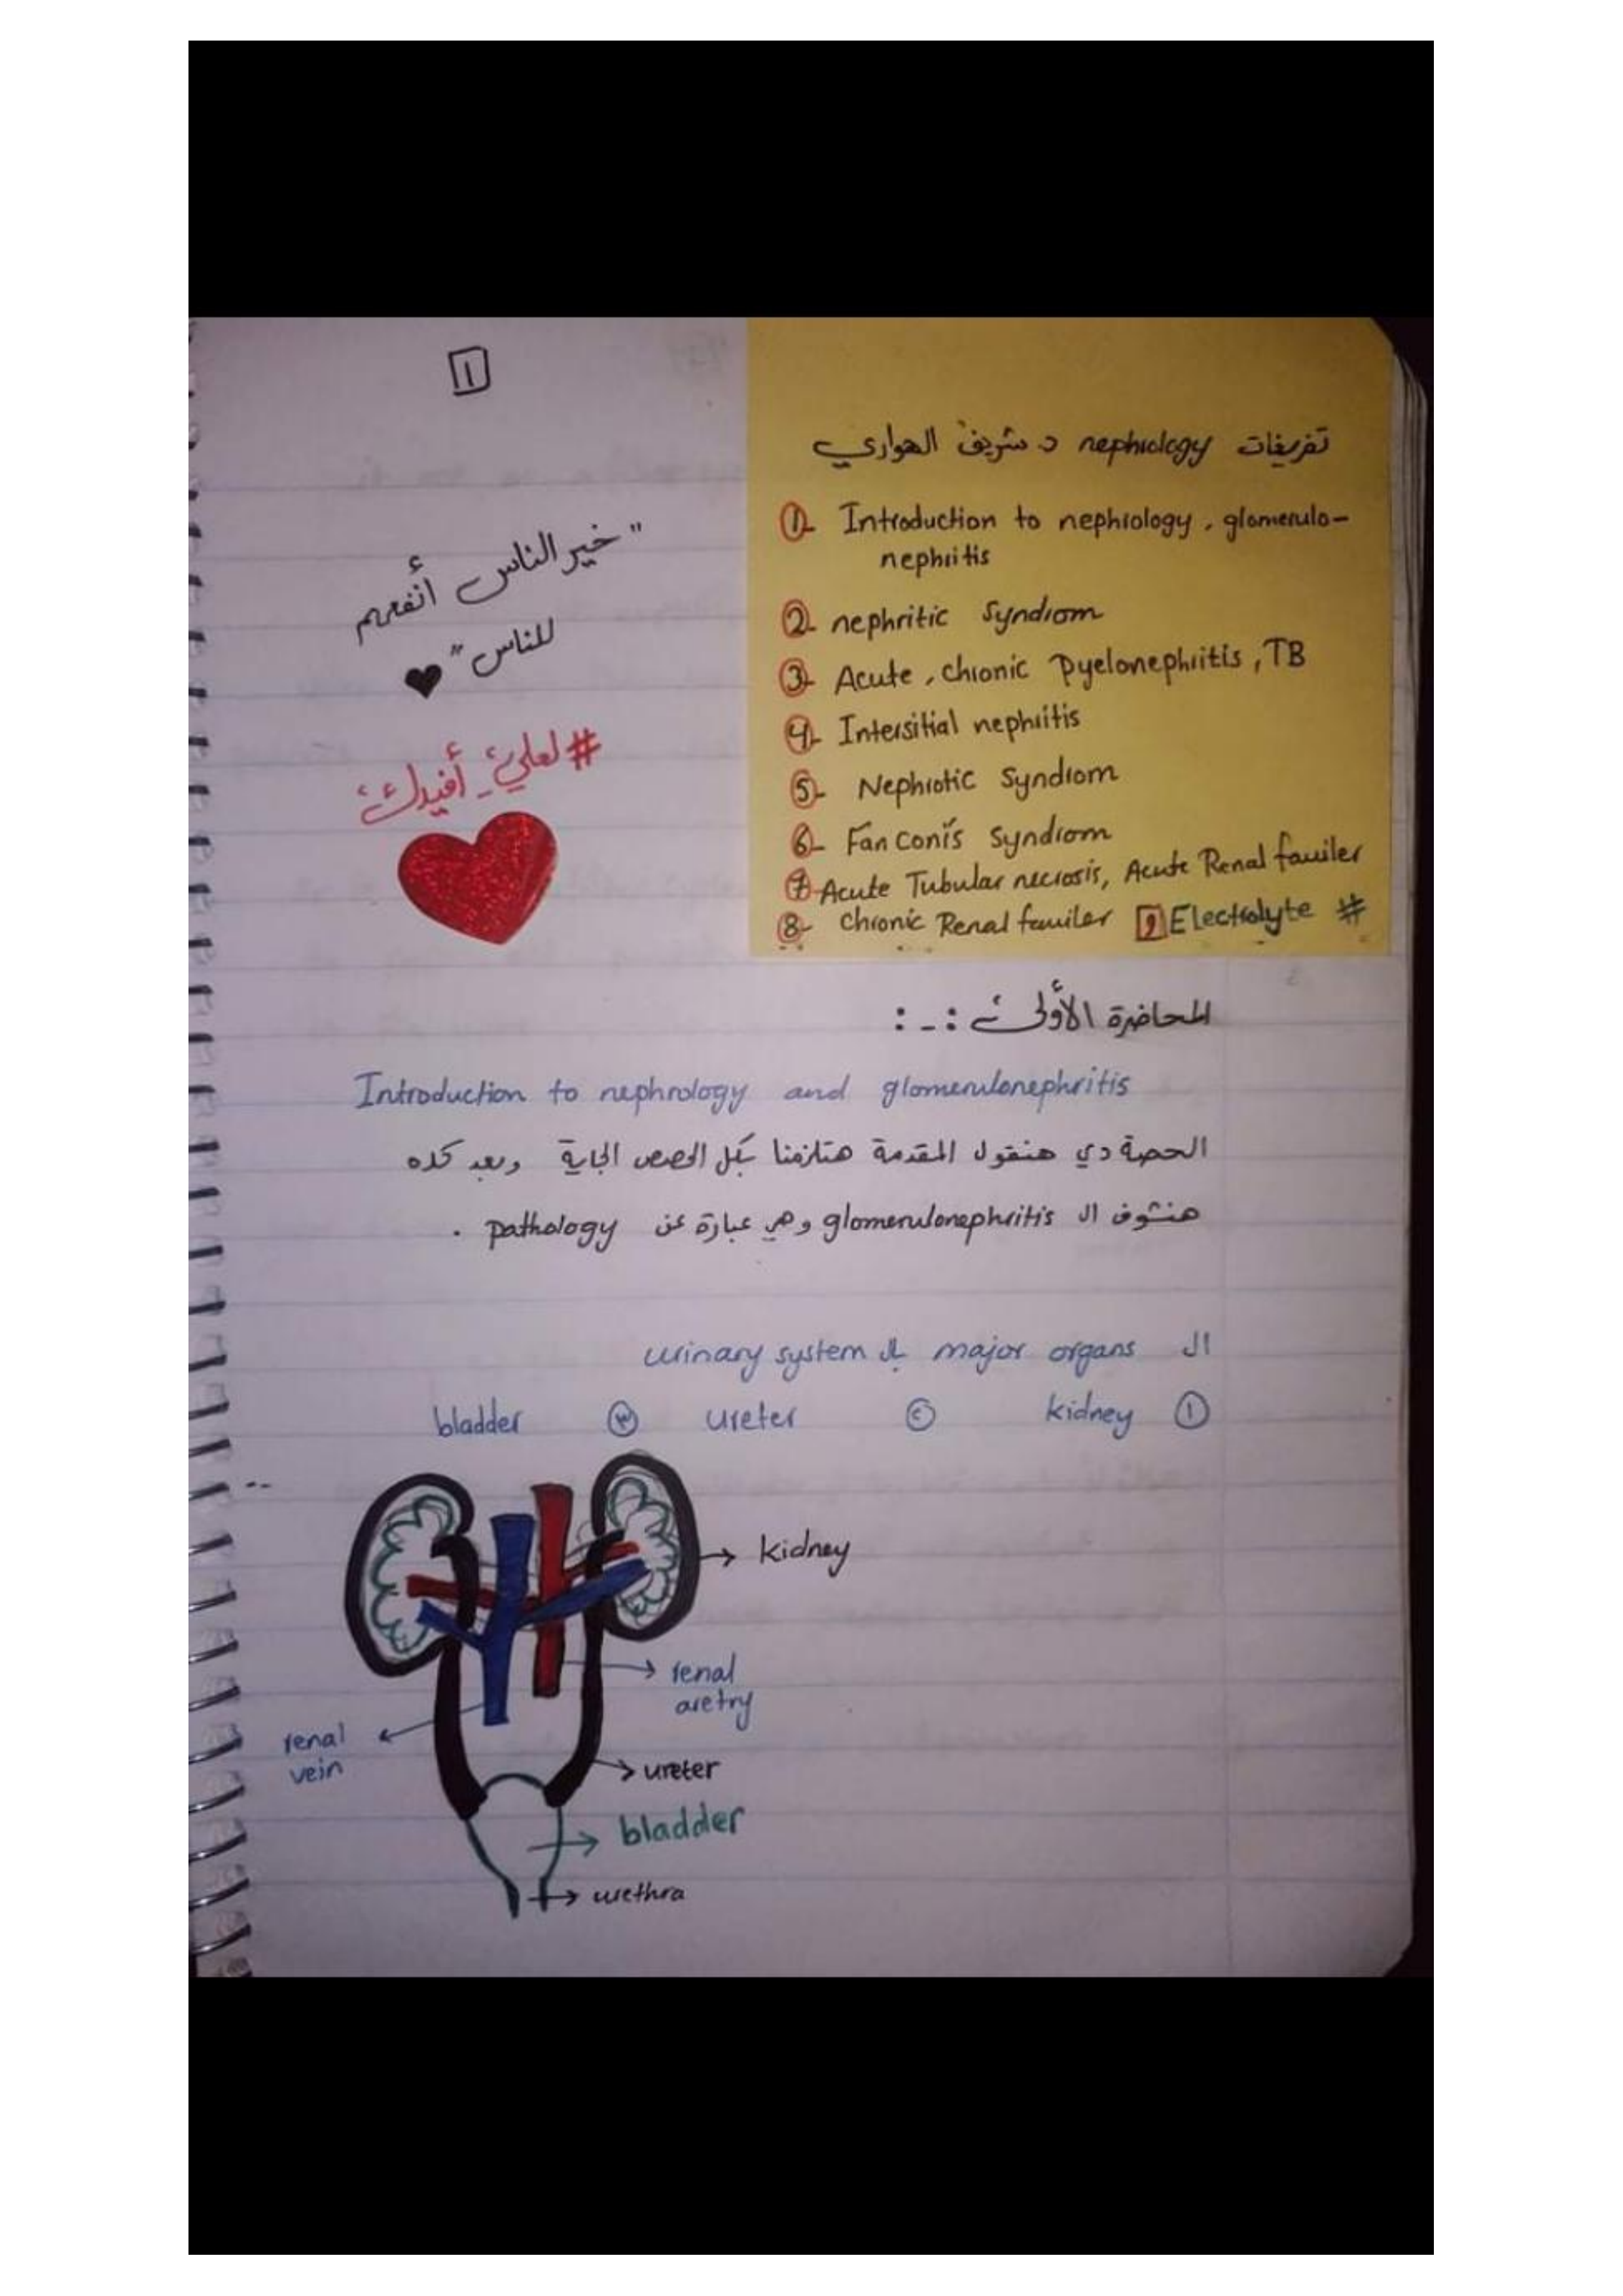 ١
"خير الناس أنفعهم
للناس"
#لعلي_أفيدك
تفريغات nephrology د. شريف الهواري
1- Introduction to nephrology, glomerulo-
nephritis
2- nephritic Syndrom
3- Acute, chronic Pyelonephritis, TB
4- Intersitial nephritis
5- Nephrotic Syndrom
6- Fan coni's Syndrom
7- Acute Tubular necrosis, Acute Renal fauiler
8- chronic Renal fauiler 9 Electrolyte #
المحاضرة الأولى :-:
Introduction to nephrology and glomerulonephritis
الحصة دي هنقول المقدمة هتلزمنا بكل الحصص الجاية وبعد كده
هنشوف ال glomerulonephritis وهي عبارة عن pathology .
ال major organs لل urinary system
١ kidney ٢ ureter ٣ bladder
kidney
renal
aretry
renal
vein
ureter
bladder
urethra